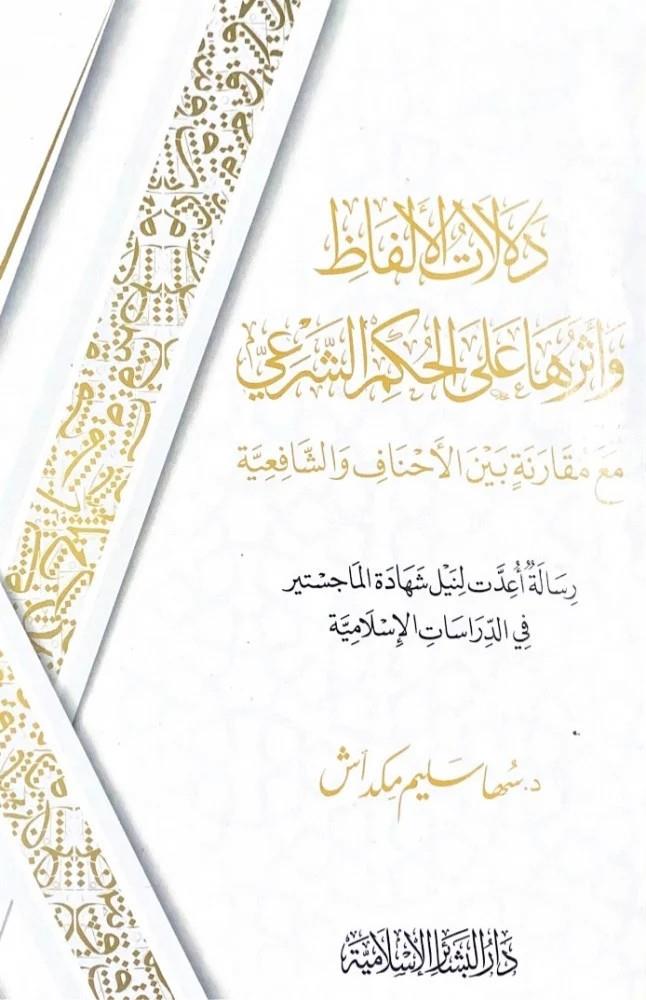 دَلَالَاتُ الأَلْفَاظِ
وَأَثَرُهَا عَلَى الحُكْمِ الشَّرْعِيِّ
مَعَ مُقَارَنَةٍ بَيْنَ الأَحْنَافِ وَالشَّافِعِيَّةِ
رِسَالَةٌ أُعِدَّت لِنَيْل شَهَادَة المَاجِسْتير
فِي الدِّرَاسَاتِ الإِسْلَامِيَّة
د. سُها سليم مكداش
دَارُ البَشَائِرِ الإِسْلَامِيَّة